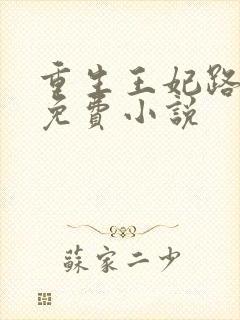 重生王妃路
免費小說
蘇家二少